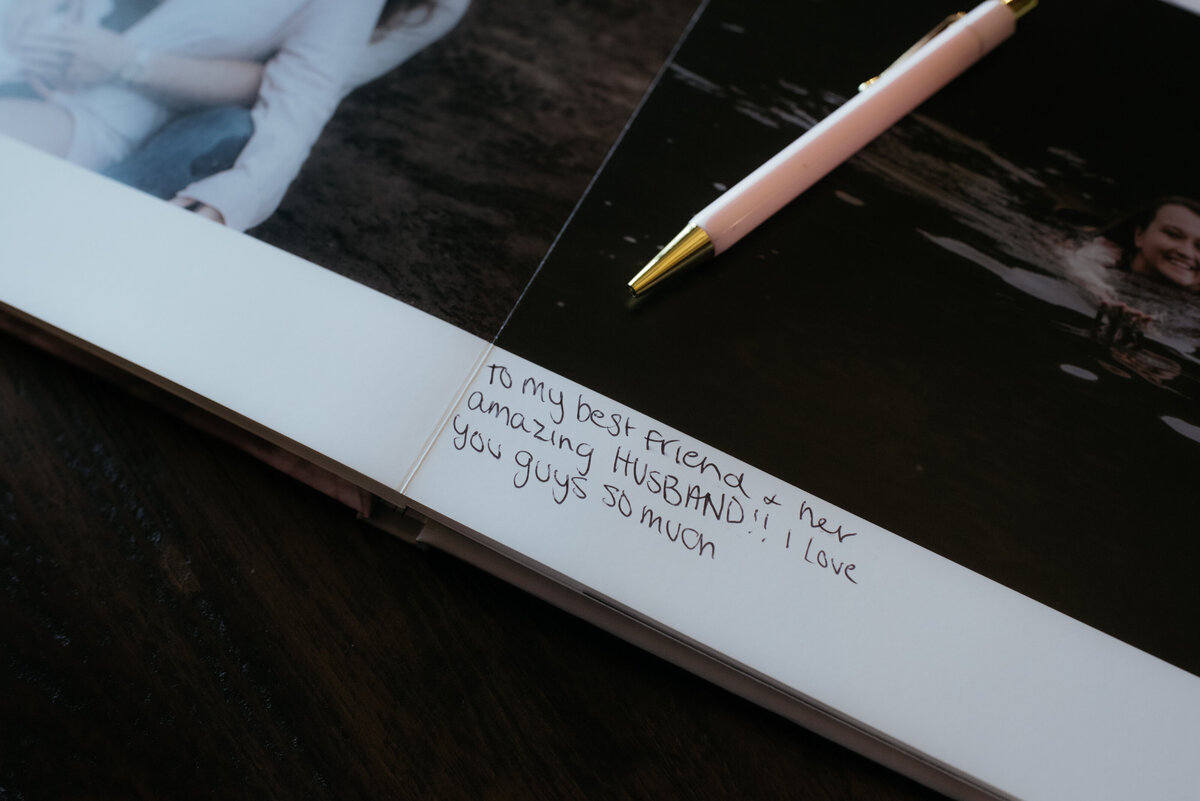 To my best friend & her
amazing HUSBAND!! I Love
you guys so much